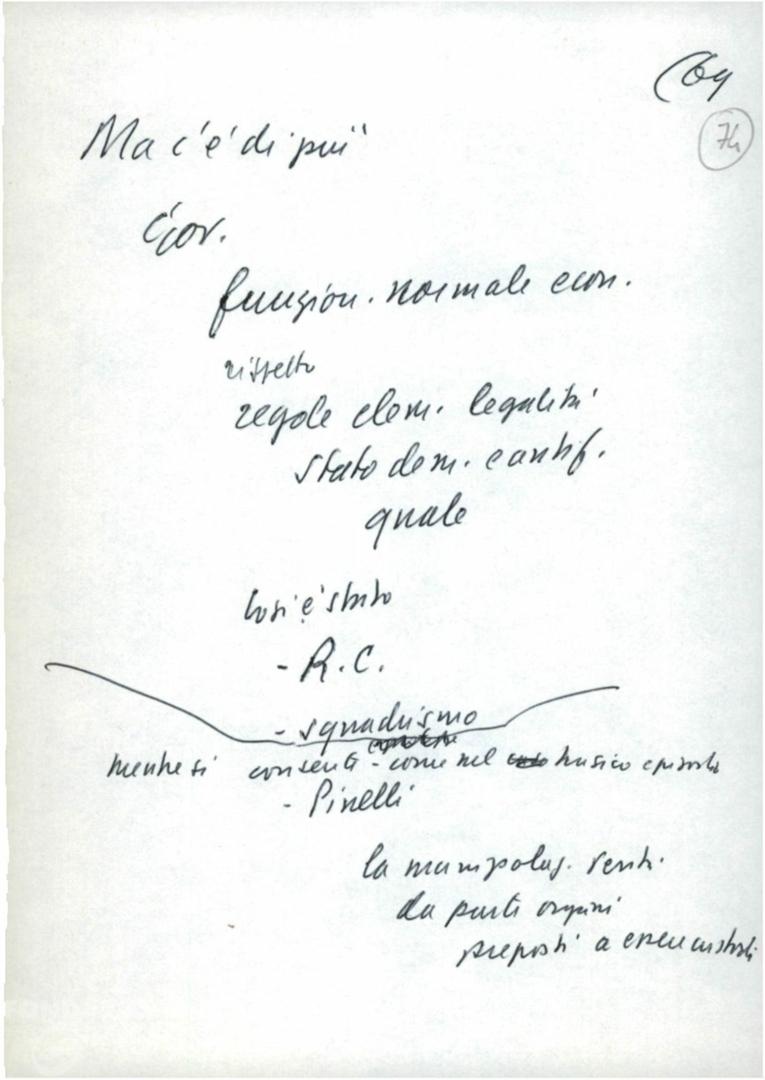 (64
74
Ma c'è di più
Gov.
funzion. normale econ.
rispetto
regole elem. legalità
stato dem. e antif.
quale
così è stato
- R.C.
- squadrismo
mentre si consente - come nel tragico episodio
- Pinelli
la manipolaz. verità
da parte organi
preposti a esserne custodi